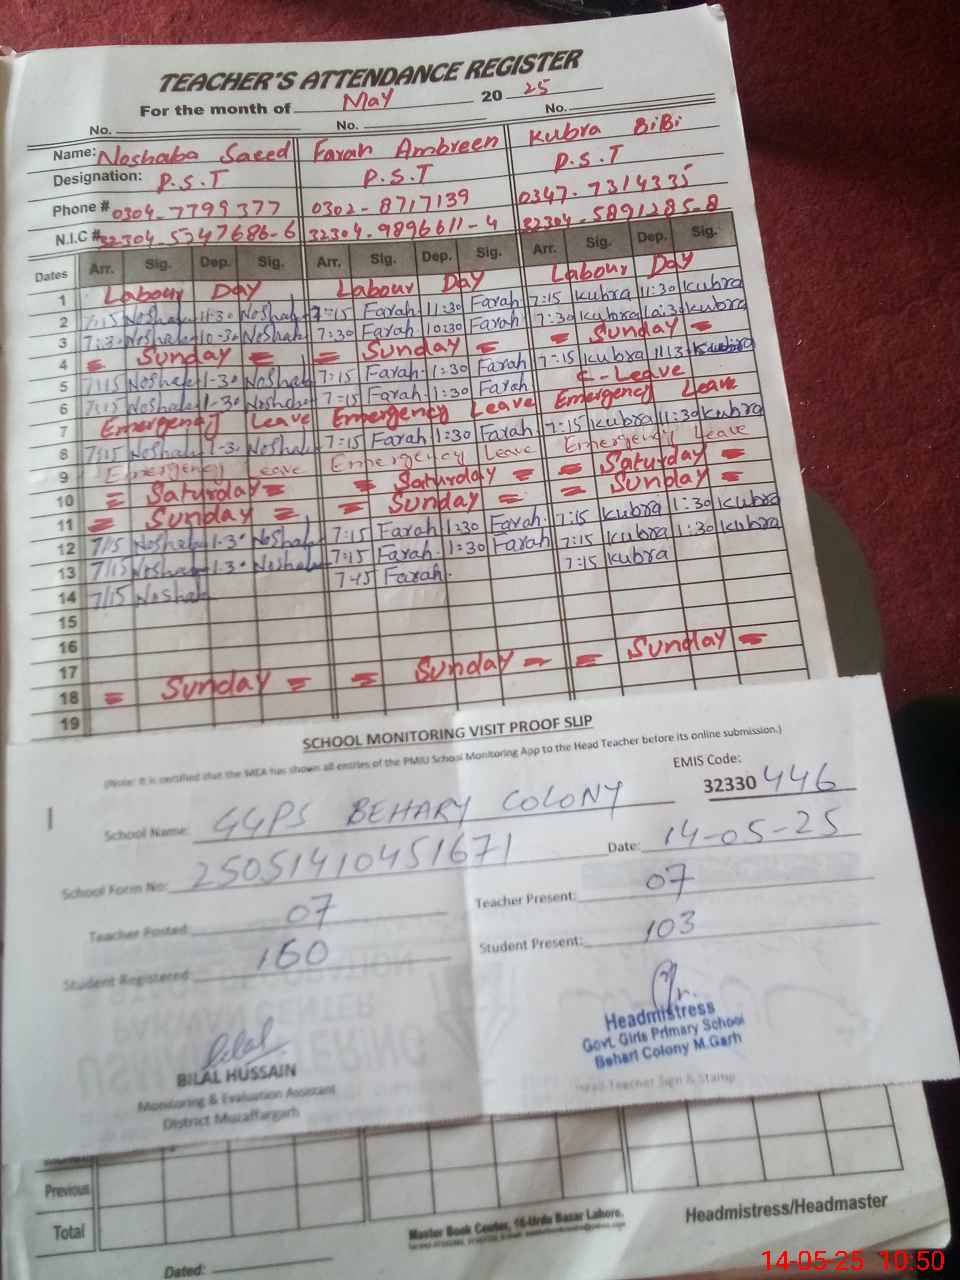 TEACHER'S ATTENDANCE REGISTER
For the month of May 2025
No. No. No.
Name: Noshaba Saeed Farah Ambreen Kubra BiBi
Designation: P.S.T P.S.T P.S.T
Phone # 0304-7799377 0302-8717139 0347-7314335
N.I.C # 32304-5347686-6 32304-9896611-4 32304-5891285-8
Dates Arr. Sig. Dep. Sig. Arr. Sig. Dep. Sig. Arr. Sig. Dep. Sig.
1 Labour Day Labour Day Labour Day
2 7:15 Noshab 11:30 Noshab 7:15 Farah 11:30 Farah 7:15 Kubra 11:30 Kubra
3 7:30 Noshab 10-30 Noshab 7:30 Farah 10:30 Farah 7:30 Kubra 10:30 Kubra
4 = Sunday = = Sunday = = Sunday =
5 7:15 Noshab 1-30 Noshab 7:15 Farah 1:30 Farah 7:15 Kubra Kubra
6 7:15 Noshab 1-30 Noshab 7:15 Farah 1:30 Farah C-Leave
7 Emergency Leave Emergency Leave Emergency Leave
8 7:15 Noshab 1-30 Noshab 7:15 Farah 1:30 Farah 7:15 Kubra 11:30 Kubra
9 Emergency Leave Emergency Leave Emergency Leave
10 = Saturday = = Saturday = = Saturday =
11 = Sunday = = Sunday = = Sunday =
12 7/15 Noshab 1-30 Noshab 7:15 Farah 1:30 Farah 7:15 Kubra 1:30 Kubra
13 7/15 Noshab 1-30 Noshab 7:15 Farah 1:30 Farah 7:15 Kubra 1:30 Kubra
14 7/15 Noshab 7:15 Farah 7:15 Kubra
15
16
17
18 = Sunday = = Sunday = = Sunday =
19
SCHOOL MONITORING VISIT PROOF SLIP
(Note: It is certified that the MEA has shown all entries of the PMIU School Monitoring App to the Head Teacher before its online submission.)
EMIS Code:
32330 446
School Name: GGPS BEHARY COLONY
School Form No: 25051410451671 Date: 14-05-25
Teacher Posted: 07 Teacher Present: 07
Student Registered: 160 Student Present: 103
Bilal
BILAL HUSSAIN
Monitoring & Evaluation Assistant
District Muzaffargarh
Headmistress
Govt. Girls Primary School
Behari Colony M.Garh
Head Teacher Sign & Stamp
Previous
Total
Master Book Center, 16-Urdu Bazar Lahore.
Headmistress/Headmaster
Dated:
14-05-25 10:50